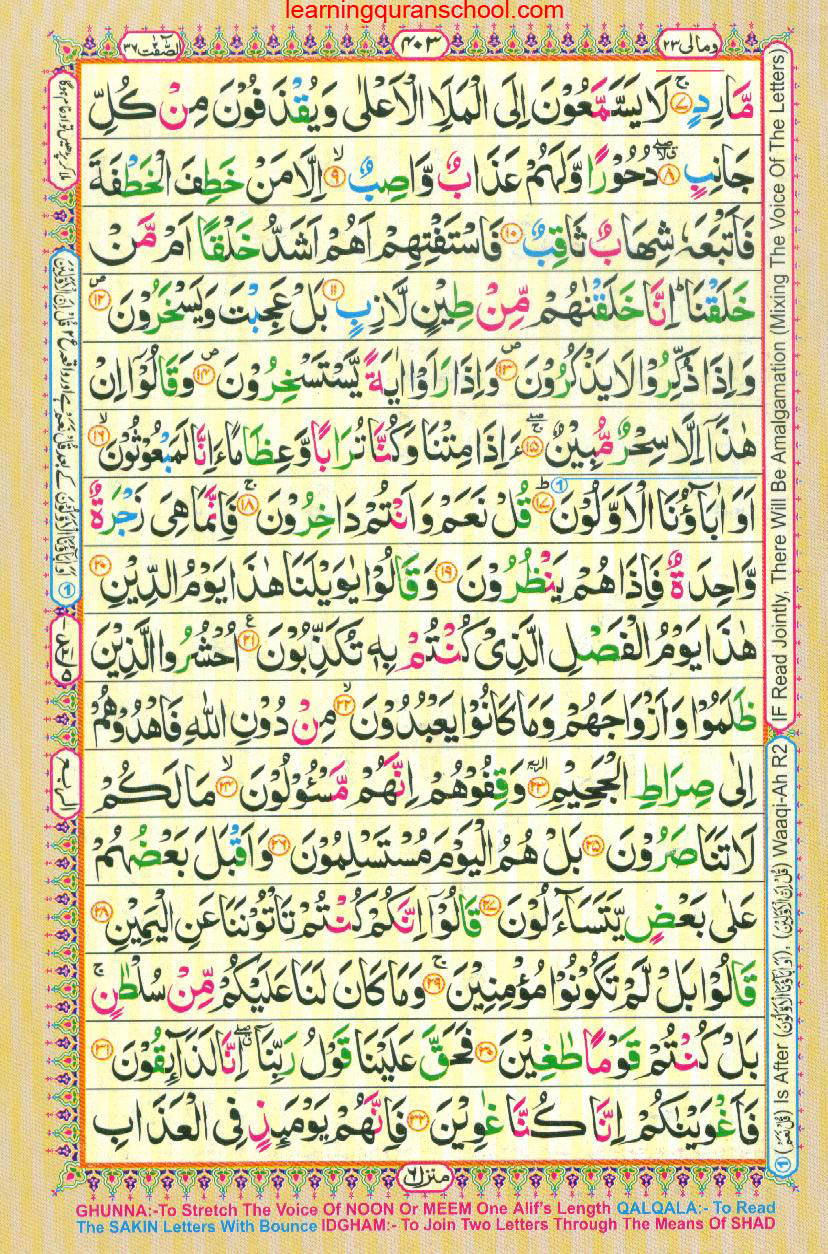 learningquranschool.com
ومالی ٢٣
٤٠٣
الصّٰفّٰت ٣٧
مَّارِدٍ ۚ‏﴿٧﴾ لَا يَسَّمَّعُوْنَ اِلَى الْمَلَاِ الْاَعْلٰى وَيُقْذَفُوْنَ مِنْ كُلِّ
جَانِبٍ ﴿٨﴾ دُحُوْرًا وَّلَهُمْ عَذَابٌ وَّاصِبٌ ۙ‏﴿٩﴾ اِلَّا مَنْ خَطِفَ الْخَطْفَةَ
فَاَتْبَعَهٗ شِهَابٌ ثَاقِبٌ ﴿١٠﴾ فَاسْتَفْتِهِمْ اَهُمْ اَشَدُّ خَلْقًا اَمْ مَّنْ
خَلَقْنَا ؕ اِنَّا خَلَقْنٰهُمْ مِّنْ طِيْنٍ لَّازِبٍ ﴿١١﴾ بَلْ عَجِبْتَ وَيَسْخَرُوْنَ ﴿١٢﴾
وَاِذَا ذُكِّرُوْا لَا يَذْكُرُوْنَ ﴿١٣﴾ وَاِذَا رَاَوْا اٰيَةً يَّسْتَسْخِرُوْنَ ﴿١٤﴾ وَقَالُوْٓا اِنْ
هٰذَاۤ اِلَّا سِحْرٌ مُّبِيْنٌ ﴿١٥﴾ ءَاِذَا مِتْنَا وَكُنَّا تُرَابًا وَّعِظَامًا ءَاِنَّا لَمَبْعُوْثُوْنَ ۙ‏﴿١٦﴾
اَوَ اٰبَآؤُنَا الْاَوَّلُوْنَ ؕ‏﴿١٧﴾ قُلْ نَعَمْ وَاَنْتُمْ دَاخِرُوْنَ ۚ‏﴿١٨﴾ فَاِنَّمَا هِىَ زَجْرَةٌ
وَّاحِدَةٌ فَاِذَا هُمْ يَنْظُرُوْنَ ﴿١٩﴾ وَقَالُوْا يٰوَيْلَنَا هٰذَا يَوْمُ الدِّيْنِ ﴿٢٠﴾
هٰذَا يَوْمُ الْفَصْلِ الَّذِىْ كُنْتُمْ بِهٖ تُكَذِّبُوْنَ ﴿٢١﴾ اُحْشُرُوا الَّذِيْنَ
ظَلَمُوْا وَاَزْوَاجَهُمْ وَمَا كَانُوْا يَعْبُدُوْنَ ۙ‏﴿٢٢﴾ مِنْ دُوْنِ اللّٰهِ فَاهْدُوْهُمْ
اِلٰى صِرَاطِ الْجَحِيْمِ ﴿٢٣﴾ وَقِفُوْهُمْ اِنَّهُمْ مَّسْـُٔوْلُوْنَ ۙ‏﴿٢٤﴾ مَا لَكُمْ
لَا تَنَاصَرُوْنَ ﴿٢٥﴾ بَلْ هُمُ الْيَوْمَ مُسْتَسْلِمُوْنَ ﴿٢٦﴾ وَاَقْبَلَ بَعْضُهُمْ
عَلٰى بَعْضٍ يَّتَسَآءَلُوْنَ ﴿٢٧﴾ قَالُوْٓا اِنَّكُمْ كُنْتُمْ تَاْتُوْنَنَا عَنِ الْيَمِيْنِ ﴿٢٨﴾
قَالُوْا بَلْ لَّمْ تَكُوْنُوْا مُؤْمِنِيْنَ ۚ‏﴿٢٩﴾ وَمَا كَانَ لَنَا عَلَيْكُمْ مِّنْ سُلْطٰنٍ ۚ
بَلْ كُنْتُمْ قَوْمًا طٰغِيْنَ ﴿٣٠﴾ فَحَقَّ عَلَيْنَا قَوْلُ رَبِّنَاۤ ۖ اِنَّا لَذَآئِقُوْنَ ﴿٣١﴾
فَاَغْوَيْنٰكُمْ اِنَّا كُنَّا غٰوِيْنَ ﴿٣٢﴾ فَاِنَّهُمْ يَوْمَئِذٍ فِى الْعَذَابِ
منزل ٦
IF Read Jointly, There Will Be Amalgamation (Mixing The Voice Of The Letters)
① (قُلْ نَعَمْ) Is After (اَوَ اٰبَآؤُنَا الْاَوَّلُوْنَ), (قُلْ اِنَّ الْاَوَّلِيْنَ) Waaqi-Ah R2
GHUNNA:-To Stretch The Voice Of NOON Or MEEM One Alif's Length QALQALA:- To Read
The SAKIN Letters With Bounce IDGHAM:- To Join Two Letters Through The Means Of SHAD